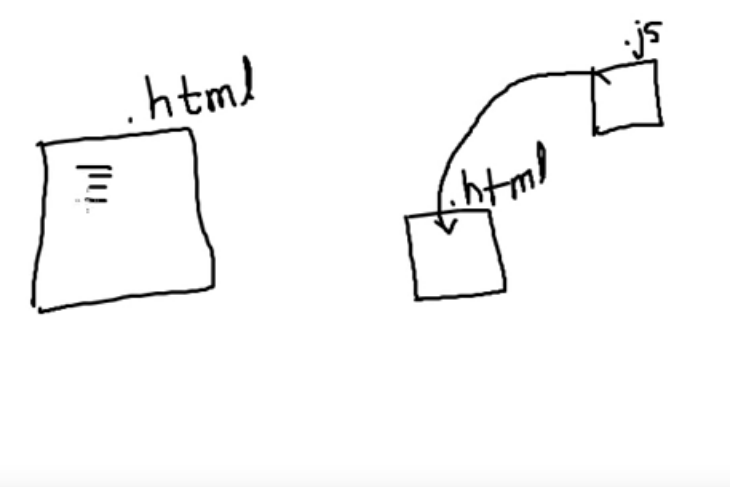 .html
.js
.html